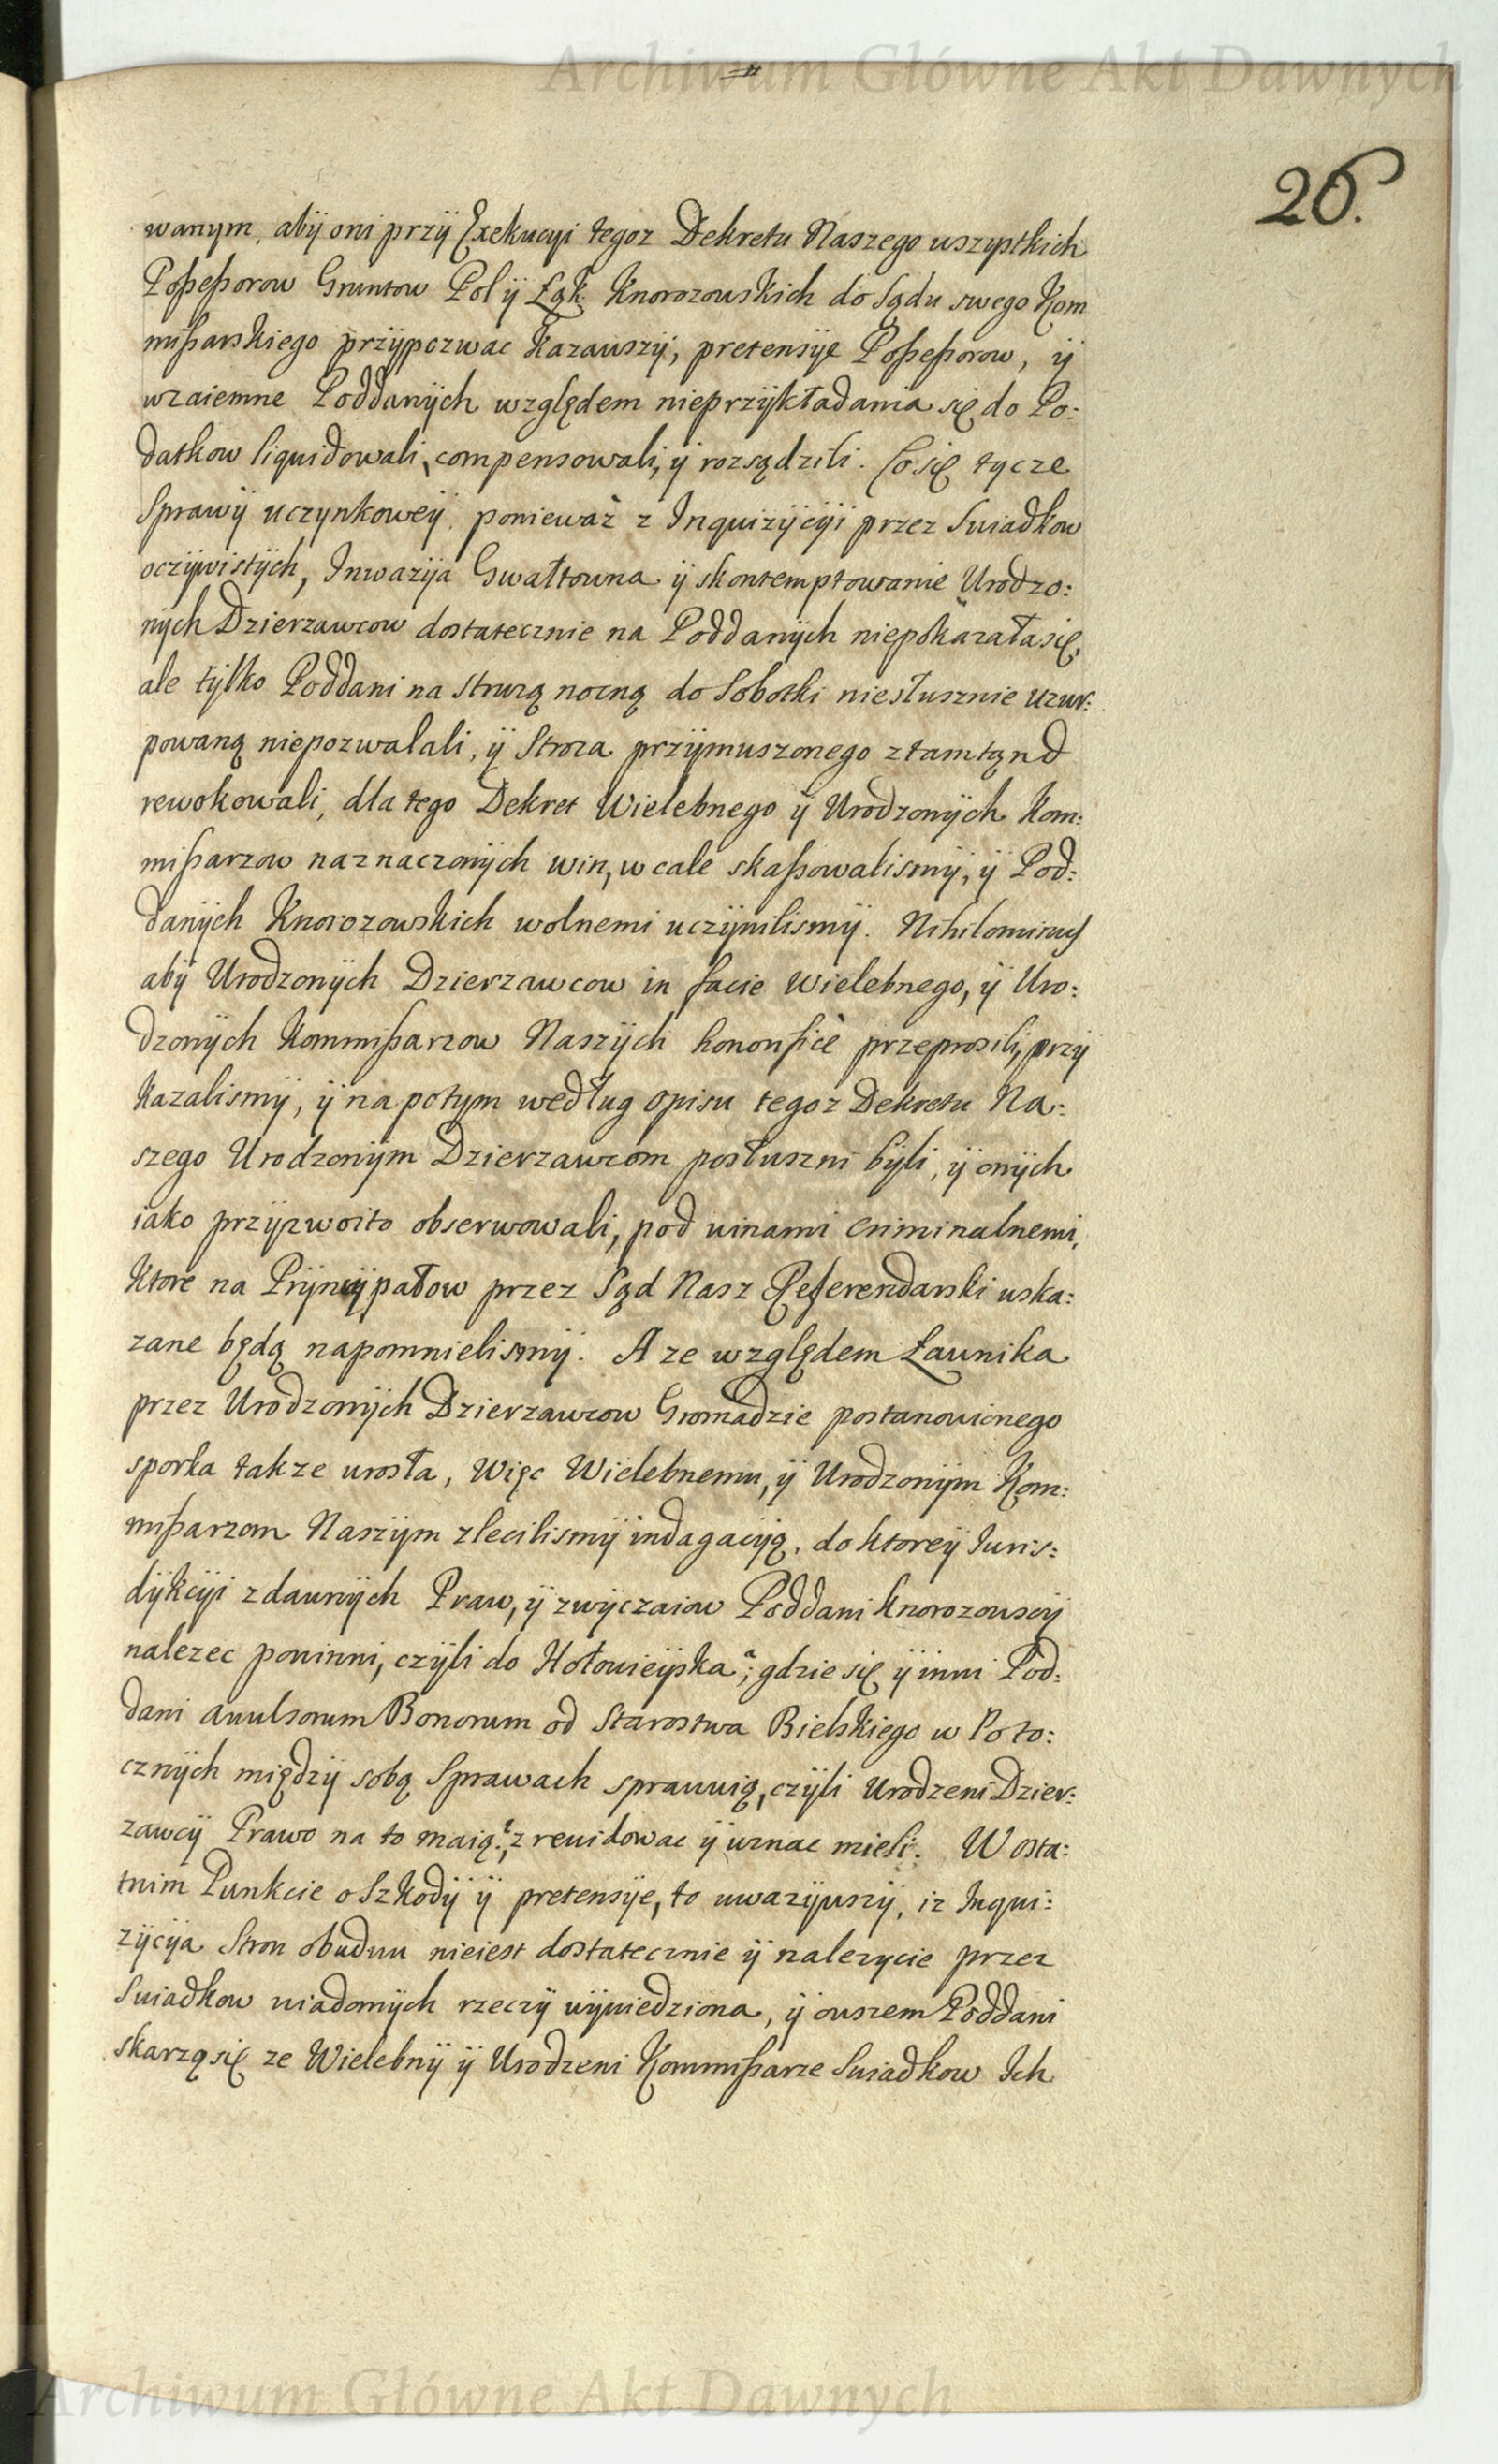 Archiwum Główne Akt Dawnych
26.
wanym, abÿ oni przÿ Exekucyi tegoz Dekretu Naszego wszystkich
Poßeßorow Gruntow Pol ÿ Łąk Knorozowskich do Sądu swego Kom
mißarskiego przÿpozwac kazawszÿ, pretensÿe Poßeßorow, ÿ
wzaiemne Poddanÿch względem nieprzÿkładania się do Po:
datkow liquidowali, compensowali, ÿ rozsądzili. Co się tycze
Sprawÿ uczynkoweÿ, ponieważ z Inquizÿcÿi przez Swiadkow
oczÿwistÿch, Inwazÿa Gwałtowna ÿ skontemptowanie Urodzo:
nÿch Dzierzawcow dostatecznie na Poddanÿch niepokazała się,
ale tÿlko Poddani na Strozą nocną do Sobotki niesłusznie uzur:
powaną niepozwalali, ÿ Stroza przÿmuszonego ztamtąnd
rewokowali, dla tego Dekret Wielebnego ÿ Urodzonÿch Kom:
mißarzow naznaczonÿch win, wcale skaßowalismÿ, ÿ Pod:
danÿch Knorozowskich wolnemi uczÿnilismÿ. Nihilominus
abÿ Urodzonÿch Dzierzawcow in facie Wielebnego, ÿ Uro:
dzonÿch Kommißarzow Naszÿch honorificè przeprosili, przÿ
kazalismÿ, ÿ na potym według opisu tegoz Dekretu Na:
szego Urodzonÿm Dzierzawcom posłuszni bÿli, ÿ onÿch
iako przÿzwoito obserwowali, pod winami criminalnemi,
ktore na Prÿncÿpałow przez Sąd Nasz Referendarski uska:
zane będą napomnielismÿ. A ze względem Ławnika
przez Urodzonÿch Dzierzawcow Gromadzie postanowionego
sporka takze urosła, Więc Wielebnemu, ÿ Urodzonÿm Kom:
mißarzom Naszÿm zlecilismÿ indagacÿą, do ktoreÿ Iuris:
dÿkcÿi z dawnÿch Praw, ÿ zwÿczaiow Poddani Knorozowscÿ
nalezec powinni, czÿli do Hołowieÿska; gdzie się ÿ inni Pod:
dani avulsorum Bonorum od Starostwa Bielskiego w Poto:
cznÿch międzÿ sobą Sprawach sprawuią, czÿli Urodzeni Dzier:
zawcÿ Prawo na to maią? zrewidowac ÿ uznac mieli. W osta:
tnim Punkcie o Szkodÿ ÿ pretensÿe, to uwazÿwszÿ, iz Inqui:
zÿcÿa Stron obudwu nieiest dostatecznie ÿ nalezycie przez
Swiadkow wiadomÿch rzeczÿ wÿwiedziona, ÿ owszem Poddani
skarzą się ze Wielebnÿ ÿ Urodzeni Kommißarze Swiadkow Ich
Archiwum Główne Akt Dawnych